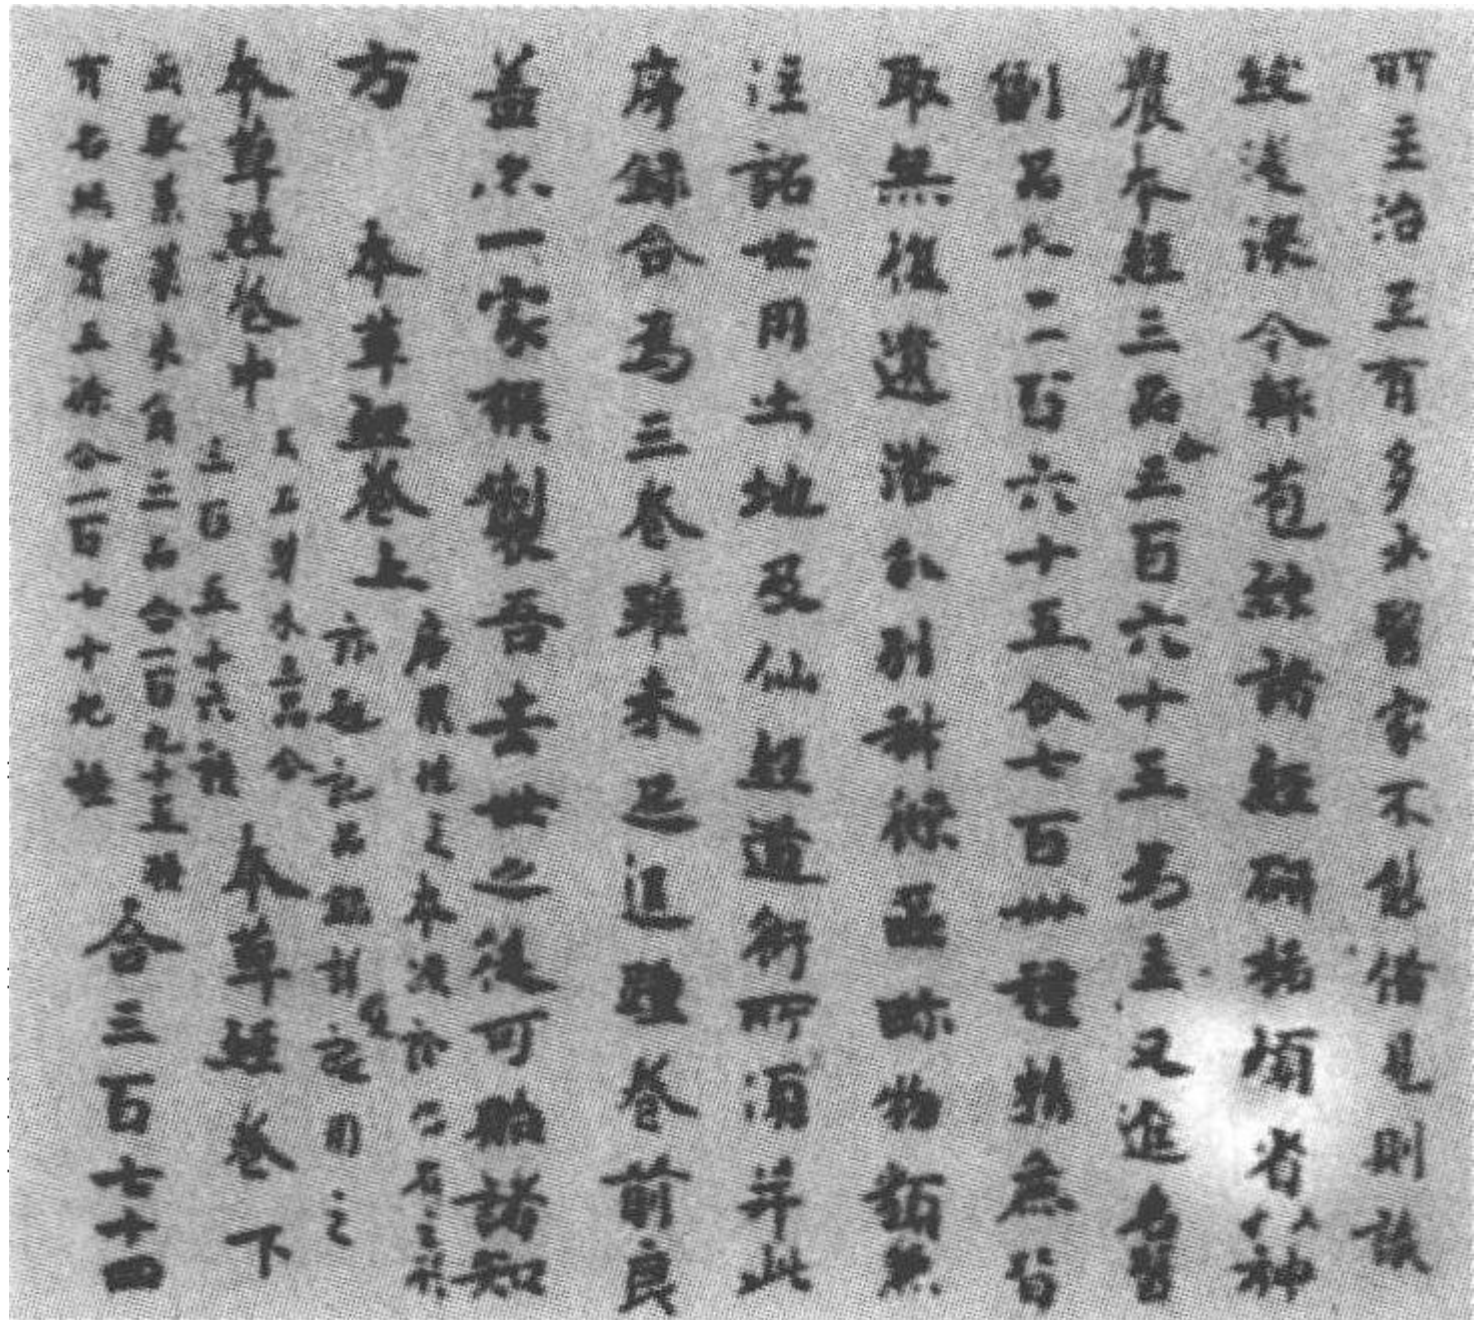 所主治互有多少醫家不能備見則識
致淺深今輒苞綜諸經研括煩省以神
農本經三品合三百六十五為主又進名醫
副品亦二百六十五合七百卅種精麁皆
取無復遺落分別科條區畛物類兼
注詺世用土地及仙經道術所須并此
序錄合為三卷雖未足追踵卷前良
蓋亦一家撰製吾去世之後可貽諸知
方 本草經卷上 序藥性之本源
題記品錄詳 用之
本草經卷中 玉石草木三品合
三百五十六種 本草經卷下
虫獸菓菜米食三品合一百九十五種
有名無實三條合一百七十九種 合三百七十四